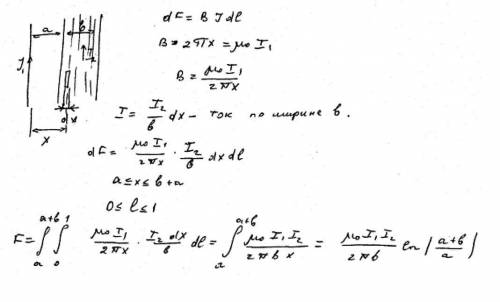 a b
I₁
x
0 x
dF = B I dl
B = 2πx = μ₀ I₁
B = μ₀ I₁ / 2πx
I = I₂/b dx – ток по ширине b.
dF = μ₀ I₁ / 2πx · I₂/b dx dl
a ≤ x ≤ b + a
0 ≤ l ≤ 1
F = ∫ₐᵃ⁺ᵇ ∫₀¹ μ₀ I₁ / 2πx · I₂ dx / b dl = ∫ₐᵃ⁺ᵇ μ₀ I₁ I₂ / 2πb x = μ₀ I₁ I₂ / 2πb ln | a+b / a |